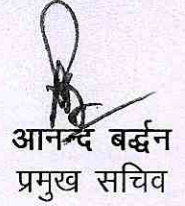 आनन्द बर्द्धन
प्रमुख सचिव